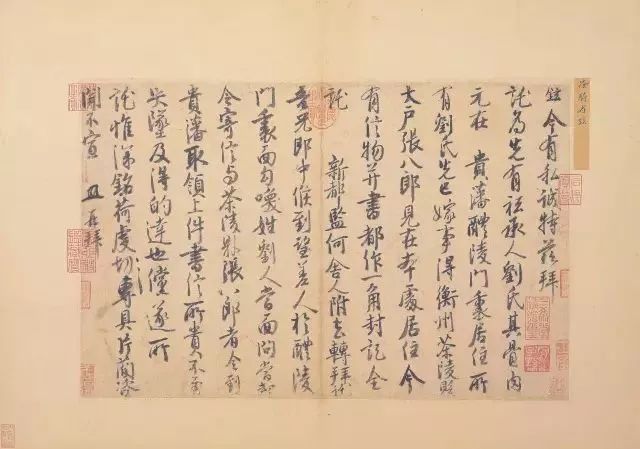 鉉今有私誠特茲拜
託為先有祗承人劉氏其骨肉
元在 貴藩醴陵門裏居住所
有劉氏先已嫁事得衡州茶陵縣
大戶張八郎見在本處居住今
有信物并書都作一角封記全
託 新都監何舍人附去轉拜託
吾兄郎中候到望差人於醴陵
門裏面勾喚姓劉人當面問當却
令寄信与茶陵縣張八郎者令到
貴藩取領上件書信所貴不至
失墜及得的達也儻遂所
託惟深銘荷虔切專具片簡諮
聞不宣 鉉再拜